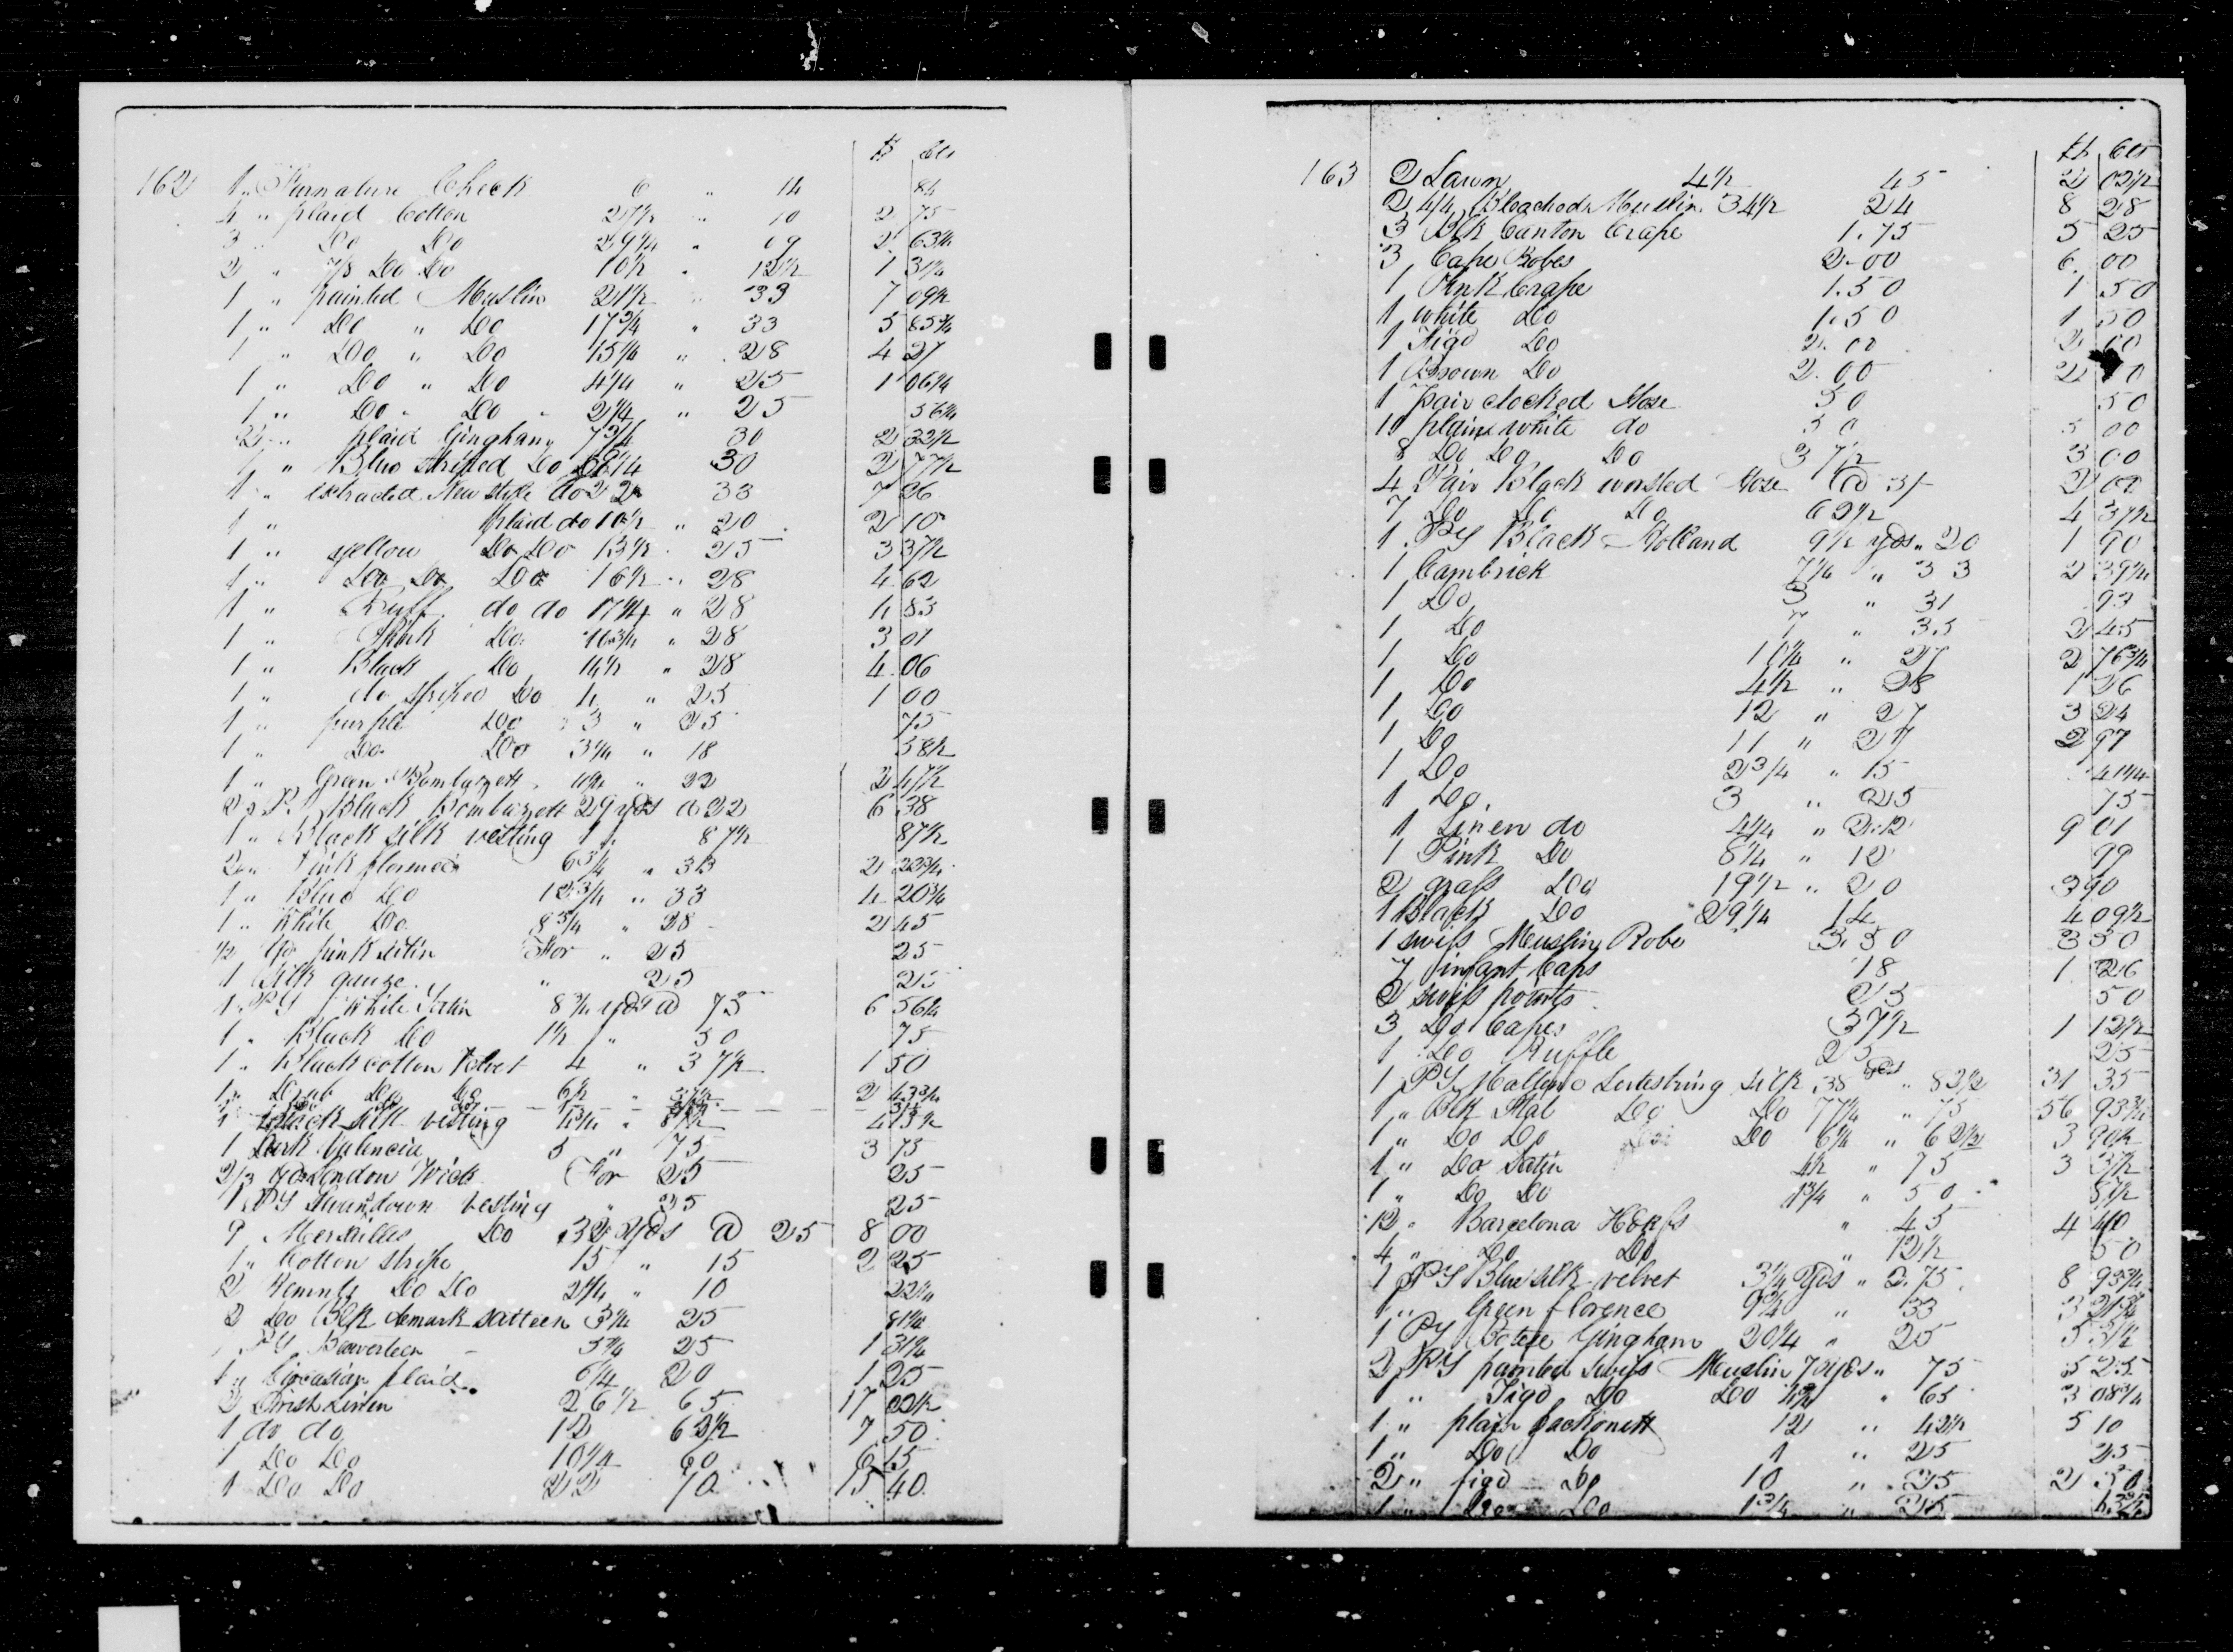 $ Cts
162 1 " Furnature Check 6 " 14 84
4 " plaid Cotton 27 1/2 " 10 2 75
3 " Do Do 29 1/4 " 09 2 63 1/4
2 " 7/8 Do Do 10 1/2 " 12 1/2 1 31 1/4
1 " painted Muslin 21 1/2 " 33 7 09 1/2
1 " Do " Do 17 3/4 " 33 5 85 3/4
1 " Do " Do 15 1/4 " 28 4 27
1 " Do " Do 4 1/4 " 25 1 06 1/4
1 " Do " Do " 2 1/4 " 25 56 1/4
2 " plaid Gingham 7 3/4 30 2 32 1/2
1 " Blue Striped Do 9 1/4 30 2 77 1/2
1 " extraded New style do 22 33 7 26
1 " plaid do 10 1/2 " 20 2 10
1 " yellow Do Do 13 1/2 " 25 3 37 1/2
1 " Do Do Do 16 1/2 " 28 4 62
1 " Buff do do 17 1/4 " 28 4 83
1 " Pink Do 10 3/4 " 28 3 01
1 " Black Do 14 1/2 " 28 4 06
1 " do striped Do 4 " 25 1 00
1 " purple Do 3 " 25 75
1 " Do Do 3 1/4 " 18 58 1/2
1 " Green Bombazett 11 1/4 " 22 2 47 1/2
2 " Ps Black Bombazett 29 yds a 22 6 38
1 " Black silk vesting 1 " 87 1/2 87 1/2
2 " Pink florence 6 3/4 " 33 2 22 3/4
1 " Blue Do 12 3/4 " 33 4 20 3/4
1 " White Do 8 3/4 " 28 2 45
1/2 yd pink satin For " 25 25
1 Silk gauze " 25 25
1 " PS White Satin 8 3/4 yds @ 75 6 56 1/4
1 " Black Do 1 1/2 " 50 75
1 " Black cotton Velvet 4 " 37 1/2 1 50
1 " Drab Do Do 6 1/2 " 37 1/2 2 43 3/4
1 Black silk vesting 4 3/4 " 87 1/2 4 15 1/2
1 Dark Valencia 5 " 75 3 75
2/3 yds London Wick For 25 25
1 PS Swandown vesting " 25 25
9 Mersailles Do 32 yds @ 25 8 00
1 " Cotton stripe 15 " 15 2 25
2 Remnts Do Do 2 1/4 " 10 22 1/2
2 Do Blk demark satteen 3 1/4 25 81 1/4
1 PS Beaverteen 5 1/4 25 1 31 1/4
1 " Circasian plaid 6 1/4 20 1 25
2 Irish Linen 26 1/2 65 17 22 1/2
1 do do 12 62 1/2 7 50
1 Do Do 10 1/4 60 6 15
1 Do Do 22 70 15 40
$ Cts
163 2 Lawn 4 1/2 45 2 02 1/2
2 4/4 Bleached Muslin 34 1/2 24 8 28
3 Blk Canton Crape 1.75 5 25
3 Cape Robes 2.00 6 00
1 Pink Crape 1.50 1 50
1 white Do 1.50 1 50
1 Figd Do 2.00 2 00
1 Brown Do 2.00 2 0
1 pair clocked Hose 50 50
10 plain white do 50 5 00
8 Do Do Do 37 1/2 3 00
4 Pair Black worsted Hose @ 3/- 2 00
7 Do Do Do 62 1/2 4 37 1/2
1 PS Black Holland 9 1/2 yds " 20 1 90
1 Cambrick 7 1/4 " 33 2 39 1/4
1 Do 3 " 31 93
1 Do 7 " 35 2 45
1 Do 10 1/4 " 27 2 76 3/4
1 Do 4 1/2 " 28 1 26
1 Do 12 " 27 3 24
1 Do 11 " 27 2 97
1 Do 2 3/4 " 15 41 1/4
1 Do 3 " 25 75
1 Linen do 4 1/4 " 2.12 9 01
1 Pink Do 8 1/4 " 12 99
2 grass Do 19 1/2 " 20 3 90
1 Black Do 29 1/4 14 4 09 1/2
1 swiss Muslin Robe 3.50 3 50
7 infant Caps 18 1 26
2 swiss points 25 50
3 Do Capes 37 1/2 1 12 1/2
1 Do Ruffle 25 25
1 PS Lutestring silk 38 yds " 82 1/2 31 35
1 " Blk Ital Do Do 77 1/4 " 75 56 93 3/4
1 " Do Do Do 6 1/4 " 62 1/2 3 90 1/2
1 " Do Satin 4 1/2 " 75 3 37 1/2
1 " Do Do 1 3/4 " 50 87 1/2
12 " Barcelona Hdkfs " 45 4 40
4 " Do Do " 12 1/2 50
1 PS Blue silk velvet 3 1/4 yds " 2.75 8 93 3/4
1 " Green florence 9 3/4 " 33 3 21 3/4
1 PS Gingham 20 1/4 " 25 5 31 1/2
2 PS painted swiss Muslin 7 yds " 75 5 25
1 " Figd Do Do 4 3/4 " 65 3 08 3/4
1 " plain Jackonett 12 " 42 1/2 5 10
1 " Do Do 1 " 25 25
2 " figd Do 10 " 25 2 50
1 " Do Do 1 3/4 " 25 43 3/4